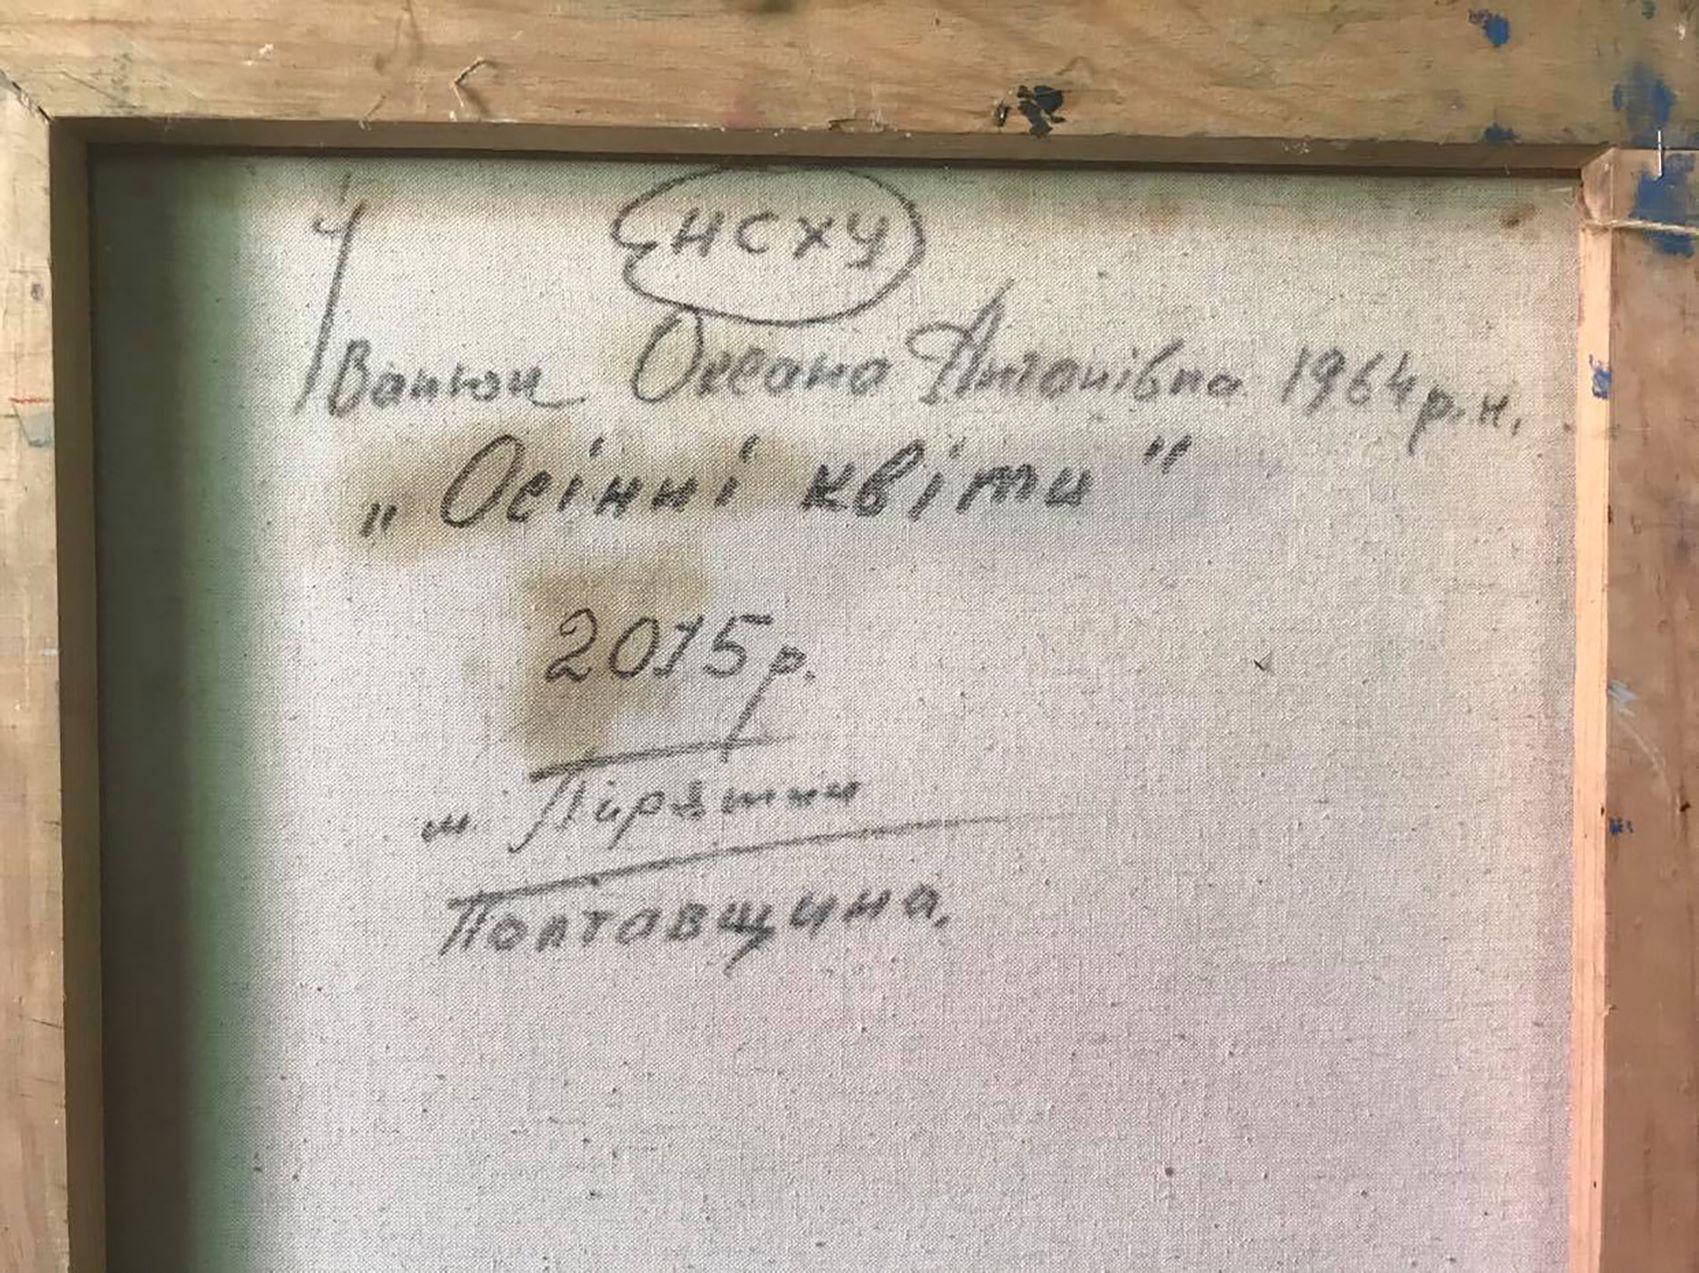 НСХУ
Іванюк Оксана Антонівна 1964 р.н.
„Осінні квіти"
2015 р.
м. Пирятин
Полтавщина.